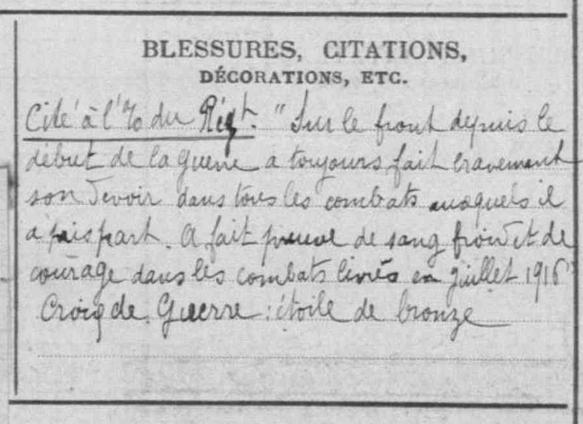 BLESSURES, CITATIONS,
DÉCORATIONS, ETC.
Cité à l'% du Régt. "Sur le front depuis le
début de la guerre a toujours fait bravement
son devoir dans tous les combats auxquels il
a pris part. A fait preuve de sang froid et de
courage dans les combats livrés en juillet 1916"
Croix de Guerre : étoile de bronze